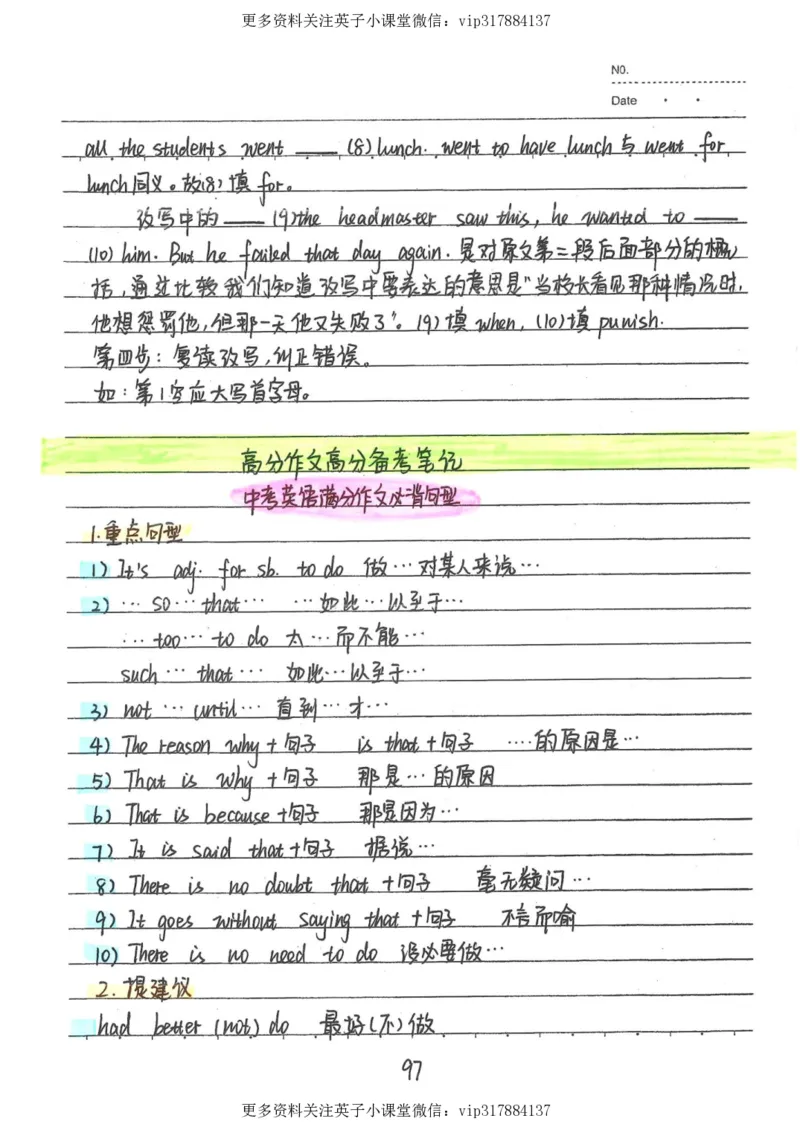 更多资料关注英子小课堂微信：vip317884137
N0.
Date
all the students went ___ (8) lunch. went to have lunch 与 went for
lunch 同义。故(8)填 for。
改写中的 ___ (9) the headmaster saw this, he wanted to ___
(10) him. But he failed that day again. 是对原文第二段后面部分的概
括,通过比较我们知道改写中要表达的意思是"当校长看见那种情况时,
他想惩罚他,但那一天他又失败了"。(9)填 when, (10)填 punish.
第四步:复读改写,纠正错误。
如:第1空应大写首字母。
高分作文高分备考笔记
中考英语满分作文必背句型
1.重点句型
1) It's adj. for sb. to do 做…对某人来说…
2) … so … that … …如此…以至于…
… too … to do 太…而不能…
such … that … 如此…以至于…
3) not … until … 直到…才…
4) The reason why+句子 is that+句子 ….的原因是…
5) That is why +句子 那是…的原因
6) That is because +句子 那是因为…
7) It is said that+句子 据说…
8) There is no doubt that +句子 毫无疑问…
9) It goes without saying that +句子 不言而喻
10) There is no need to do 没必要做…
2. 提建议
had better (not) do 最好(不)做
97
更多资料关注英子小课堂微信：vip317884137